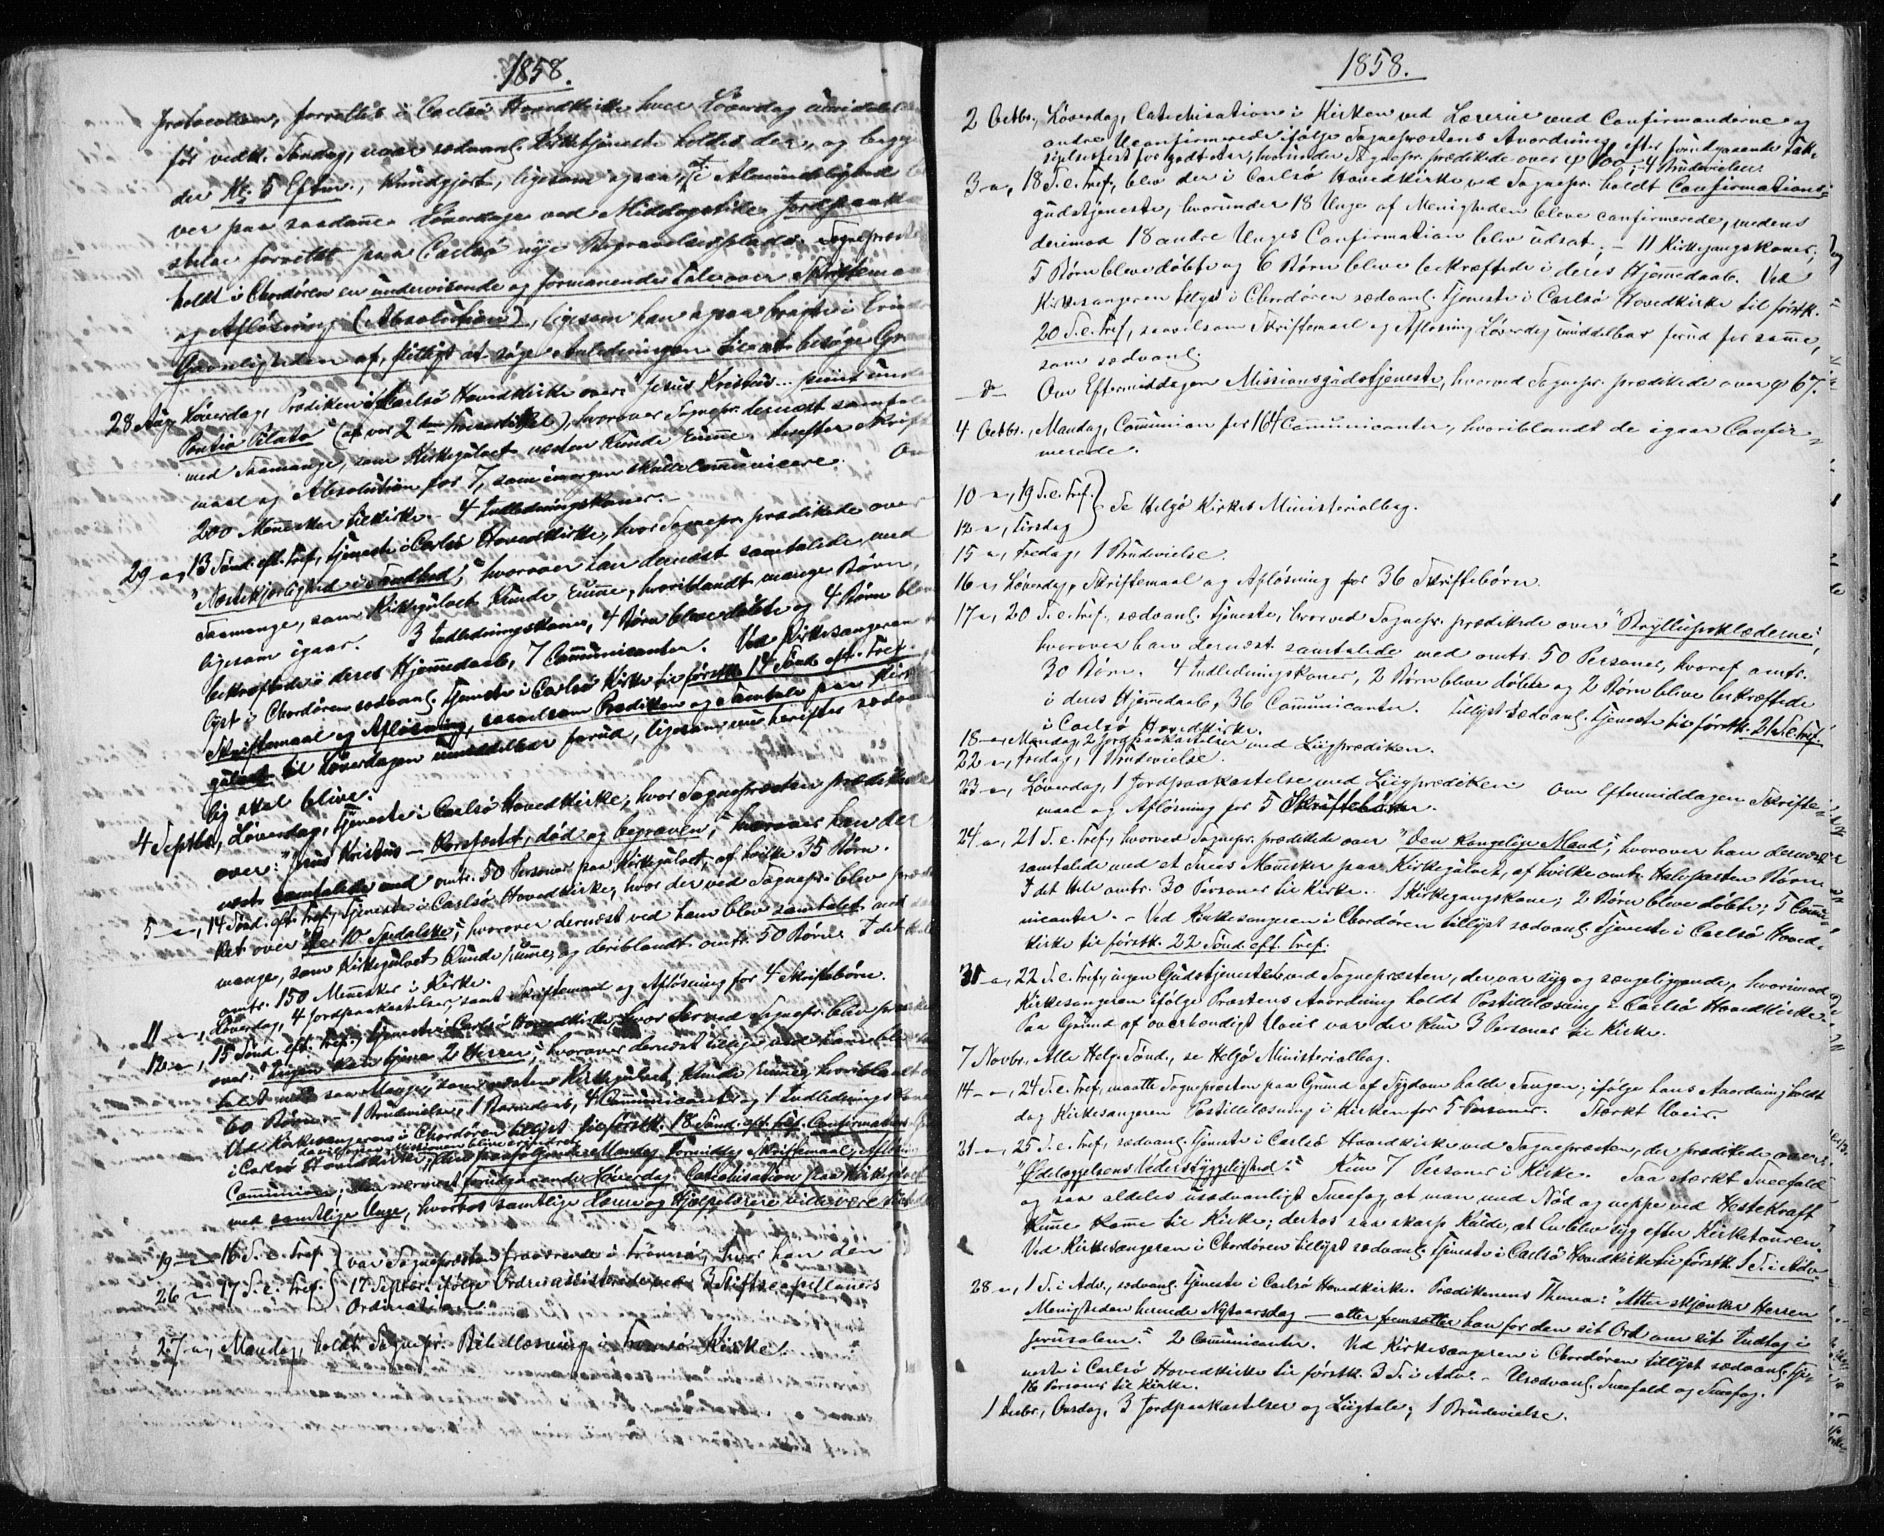 1858.
Protocollen, forrettes i Carlsö Hovedkirke hver Löverdag umiddelbar
før vedk. Söndag, naar sædvanl. Kirketjeneste holdes der, og begyn
der Kl. 5 Efterm., kundgjort, ligesom ogsaa, at i Almindelighed bli
ver paa saadanne Löverdage ved Middagstider Jordpaaka
stelse forrettet paa Carlsö nye Begravelsesplads. Sognepræsten
holdt i Chordören en undervisende og formanende Tale over Skriftemaal
og Aflösning (Absolution), ligesom han ogsaa bragte i Erindring
Gavnligheden af, flittigt at söge Anledningen til at besöge Gr
28 Aug. Löverdag, Prædiken i Carlsö Hovedkirke over: "Jesus Kristus ... piint under
Pontio Pilato" (af vor 2den Troesartikkel), hvorover Sognepr. dernæst samtalede
med Saamange, som Kirkegulvet næsten kunde rumme. Derefter Skrifte
maal og Absolution for 7, som imorgen skulle communicere. Om
200 Mennesker til Kirke. - 4 Indledningskoner. -
29 -"-, 13 Sönd. eft. Tref., Tjeneste i Carlsö Hovedkirke, hvor Sognepr. prædikede over
"Næstekjærlighed i Sandhed", hvorover han dernæst samtalede med
Saamange, som Kirkegulvet kunde rumme, hvoriblandt mange Börn,
ligesom igaar. 3 Indledningskoner, 4 Börn bleve döbte og 4 Börn bleve
bekræftede i deres Hjemmedaab, 7 Communicanter. Ved Kirkesangeren
lyst i Chordören sædvanl. Tjeneste i Carlsö Kirke til förstk. 14 Sönd. eft. Tref.
Skriftemaal og Aflösning, saavelsom Prædiken og Samtale paa Kirke
gulvet til Löverdagen umiddelbar forud, ligesom nu heriftes sædvan
lig skal blive.
4 Septbr., Löverdag, Tjeneste i Carlsö Hovedkirke, hvor Sognepræsten prædikede
over: "Jesus Kristus - Korsfæstet, död og begraven," hvorover han der
næst samtalede med omtr. 50 Personer paa Kirkegulvet, af hvilke 35 Börn.
5 -"-, 14 Sönd. eft. Tref., Tjeneste i Carlsö Hovedkirke, hvor der ved Sognepr. blev prædi
ket over "De 10 Spedalske", hvorover dernæst ved ham blev samtalet med saa
mange, som Kirkegulvet kunde rumme, og deriblandt omtr. 50 Börn. I det Hele
omtr. 150 Mennesker i Kirke.
11 -"-, Löverdag, 4 Jordpaakastelser, samt Skriftemaal og Aflösning for 4 Skriftebörn.
12 -"-, 15 Sönd. eft. Tref., Tjeneste i Carlsö Hovedkirke, hvor der ved Sognepr. blev prædiket
over: "Ingen kan tjene 2 Herrer", hvorover dernæst tillige ved ham blev
talet med saa Mange, som næsten Kirkegulvet kunde rumme, hvoriblandt
60 Börn. - 1 Brudevielse, 1 Barnedaab, 4 Communicanter og 1 Indledningskone
Ved Kirkesangeren i Chordören tillyst til förstk. 18 Sönd. eft. Tref. Confirmation
i Carlsö Hovedkirke, paafölgende Mandag Formiddag Skriftemaal, Aflösn
Communion, nærmest forudgaaende Löverdag Catechisation paa Kirkegulvet
med samtlige Unge, hvorhos samtlige Lærere og Hjelpelærere vilde være tilst
19 -"- 16 S. e. Tref. } var Sognepræsten fraværende i Tromsö, hvor han den
26 -"- 17 S. e. Tref. } 17 Septbr. ifölge Ordre assisterede ved 2 Stiftscapellaners
Ordination.
27 -"-, Mandag, holdt Sognepr. Bibellæsning i Tromsö Kirke.
1858.
2 Octbr., Löverdag, Catechisation i Kirken ved Lærerne med Confirmanderne og
andre Uconfirmerede ifölge Sognepræstens Anordning, efter forudgaaende Tak-
sigelsesfest for godt Aar, hvorunder Sognepr. prædikede over ψ 100. - 4 Brudevielser.
3 -"-, 18 S. e. Tref., blev der i Carlsö Hovedkirke ved Sognepr. holdt Confirmations-
gudstjeneste, hvorunder 18 Unge af Menigheden bleve confirmerede, medens
derimod 18 andre Unges Confirmation blev udsat; - 11 Kirkegangskoner;
5 Börn bleve döbte og 6 Börn bleve bekræftede i deres Hjemmedaab. Ved
Kirkesangeren tillyst i Chordören sædvanl. Tjeneste i Carlsö Hovedkirke til förstk.
20 S. e. Tref., saavelsom Skriftemaal og Aflösning Löverdag umiddelbar forud for samme,
som sædvanl.
- do - Om Eftermiddagen Missionsgudstjeneste, hvorved Sognepr. prædikede over ψ 67.
4 Octbr., Mandag, Communion for 164 Communicanter, hvoriblandt de igaar Confir-
merede.
10 -"-, 19 S. e. Tref. } Se Helgö Kirkes Ministerialbog.
12 -"-, Tirsdag }
15 -"-, Fredag, 1 Brudevielse.
16 -"-, Löverdag, Skriftemaal og Aflösning for 36 Skriftebörn.
17 -"-, 20 S. e. Tref., sædvanl. Tjeneste, hvorved Sognepr. prædikede over "Bryllupsklæderne",
hvorover han dernæst samtalede med omtr. 50 Personer, hvoraf omtr.
30 Börn. 4 Indledningskoner, 2 Börn bleve döbte og 2 Börn bleve bekræftede
i deres Hjemmedaab, 36 Communicanter. Tillyst sædvanl. Tjeneste til förstk. 21 S. e. Tref.
i Carlsö Hovedkirke.
18 -"-, Mandag, 2 Jordpaakastelser med Liigprædiken.
22 -"-, Fredag, 1 Brudevielse.
23 -"-, Löverdag, 1 Jordpaakastelse med Liigprædiken. Om Eftermiddagen Skrifte-
maal og Aflösning for 5 Skriftebörn.
24 -"-, 21 S. e. Tref., hvorved Sognepr. prædikede over "Den kongelige Mand", hvorover han dernæst
samtalede med et Snees Mennesker paa Kirkegulvet, af hvilke omtr. Halvparten Börn.
I det Hele omtr. 30 Personer til Kirke. 1 Kirkegangskone; 2 Börn bleve döbte; 5 Commu-
nicanter. - Ved Kirkesangeren i Chordören tillyst sædvanl. Tjeneste i Carlsö Hoved-
kirke til förstk. 22 Sönd. eft. Tref.
31 -"-, 22 S. e. Tref., ingen Gudstjeneste ved Sognepræsten, der var syg og sengeliggende, hvorimod
Kirkesangeren ifölge Præstens Anordning holdt Postillelæsning i Carlsö Hovedkirke.
Paa Grund af overhændigt Uveir var der kun 3 Personer til Kirke.
7 Novbr., Alle Helg. Sönd., se Helgö Ministerialbog.
14 -"-, 24 S. e. Tref., maatte Sognepræsten paa Grund af Sygdom holde Sengen; ifölge hans Anordning holdt
dog Kirkesangeren Postillelæsning i Kirken for 5 Personer. Stærkt Uveir.
21 -"-, 25 S. e. Tref., sædvanl. Tjeneste i Carlsö Hovedkirke ved Sognepræsten, der prædikede over:
"Ödelæggelsens Vederstyggelighed." Kun 7 Personer i Kirke. Saa stærkt Sneefald
og saa aldeles usædvanligt Sneefog, at man med Nöd og neppe ved Hestekraft
kunne komme til Kirke; derhos saa skarp Kulde, at En blev syg efter Kirketouren.
Ved Kirkesangeren i Chordören tillyst sædvanl. Tjeneste i Carlsö Hovedkirke til förstk. 1 S. i Adv.
28 -"-, 1 S. i Adv., sædvanl. Tjeneste i Carlsö Hovedkirke. Prædikenens Thema: "Atter skjenker Herren
Menigheden herinde Nytaarsdag - atter fremsætter han for den sit Ord om sit Indtog i
Jerusalem." 2 Communicanter. Ved Kirkesangeren i Chordören tillyst sædvanl. Tje-
neste i Carlsö Hovedkirke til förstk. 3 S. i Adv. - Usædvanl. Sneefald og Sneefog.
16 Personer til Kirke.
1 Decbr., Onsdag, 3 Jordpaakastelser og Liigtale; 1 Brudevielse.